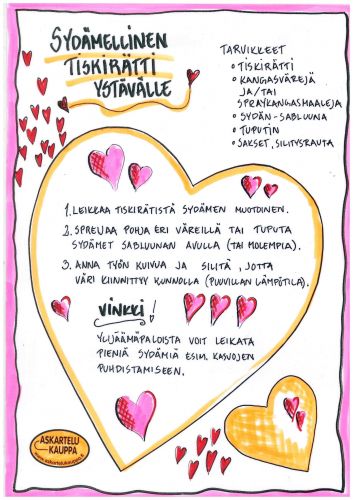 SYDÄMELLINEN
TISKIRÄTTI
YSTÄVÄLLE
TARVIKKEET
• TISKIRÄTTI
• KANGASVÄREJÄ
JA/TAI
SPRAYKANGASMAALEJA
• SYDÄN-SABLUUNA
• TUPUTIN
• SAKSET, SILITYSRAUTA
1. LEIKKAA TISKIRÄTISTÄ SYDÄMEN MUOTOINEN.
2. SPREIJAA POHJA ERI VÄREILLÄ TAI TUPUTA
SYDÄMET SABLUUNAN AVULLA (TAI MOLEMPIA).
3. ANNA TYÖN KUIVUA JA SILITÄ, JOTTA
VÄRI KIINNITTYY KUNNOLLA (PUUVILLAN LÄMPÖTILA).
VINKKI!
YLIJÄÄMÄPALOISTA VOIT LEIKATA
PIENIÄ SYDÄMIÄ ESIM. KASVOJEN
PUHDISTAMISEEN.
ASKARTELU
KAUPPA
www.askartelukauppa.fi